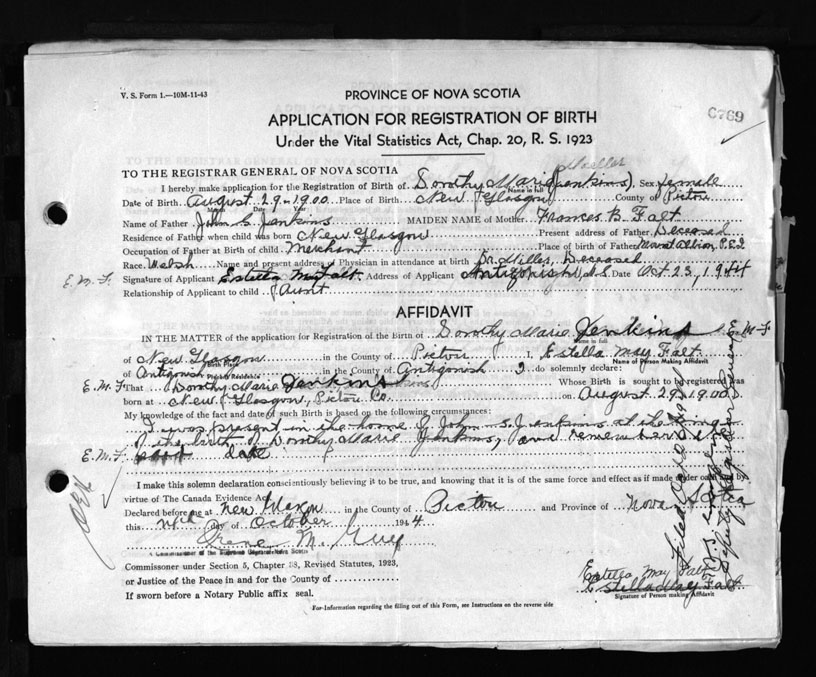 V. S. Form 1.—10M-11-43
PROVINCE OF NOVA SCOTIA
C769
APPLICATION FOR REGISTRATION OF BIRTH
Under the Vital Statistics Act, Chap. 20, R. S. 1923
TO THE REGISTRAR GENERAL OF NOVA SCOTIA
I hereby make application for the Registration of Birth of Dorothy Marie (Jenkins) Sex female
Name in full
Date of Birth August 29-1900 Place of Birth New Glasgow County of Pictou
Name of Father John S. Jenkins MAIDEN NAME of Mother Frances B. Falt
Residence of Father when child was born New Glasgow Present address of Father Deceased
Occupation of Father at Birth of child Merchant Place of birth of Father P.E.I
Race Welsh Name and present address of Physician in attendance at birth Dr. Miller, Deceased
E. M. F. Signature of Applicant Estella May Falt. Address of Applicant Antigonish N.S. Date Oct 23, 1944
Relationship of Applicant to child Aunt
AFFIDAVIT
IN THE MATTER of the application for Registration of the Birth of Dorothy Marie Jenkins E. M. F
Name in full
of New Glasgow in the County of Pictou I, Estella May Falt
Birth Place Name of Person Making Affidavit
of Antigonish in the County of Antigonish do solemnly declare:
Residence
E. M. F. That Dorothy Marie Jenkins Whose Birth is sought to be registered was
born at New Glasgow, Pictou Co. on August 29, 1900
My knowledge of the fact and date of such Birth is based on the following circumstances:
I was present in the home of John S. Jenkins at the time
of the birth of Dorothy Marie Jenkins, and remember
E. M. F. date
I make this solemn declaration conscientiously believing it to be true, and knowing that it is of the same force and effect as if made under oath and by
virtue of The Canada Evidence Act
Declared before me at in the County of Pictou and Province of Nova Scotia
this day of October 1944
Irene M.
A Commissioner of The Supreme Court of Nova Scotia
Commissioner under Section 5, Chapter 38, Revised Statutes, 1923,
or Justice of the Peace in and for the County of
If sworn before a Notary Public affix seal.
Estella May Falt
Estella May Falt
Signature of Person making Affidavit
For-Information regarding the filling out of this Form, see Instructions on the reverse side